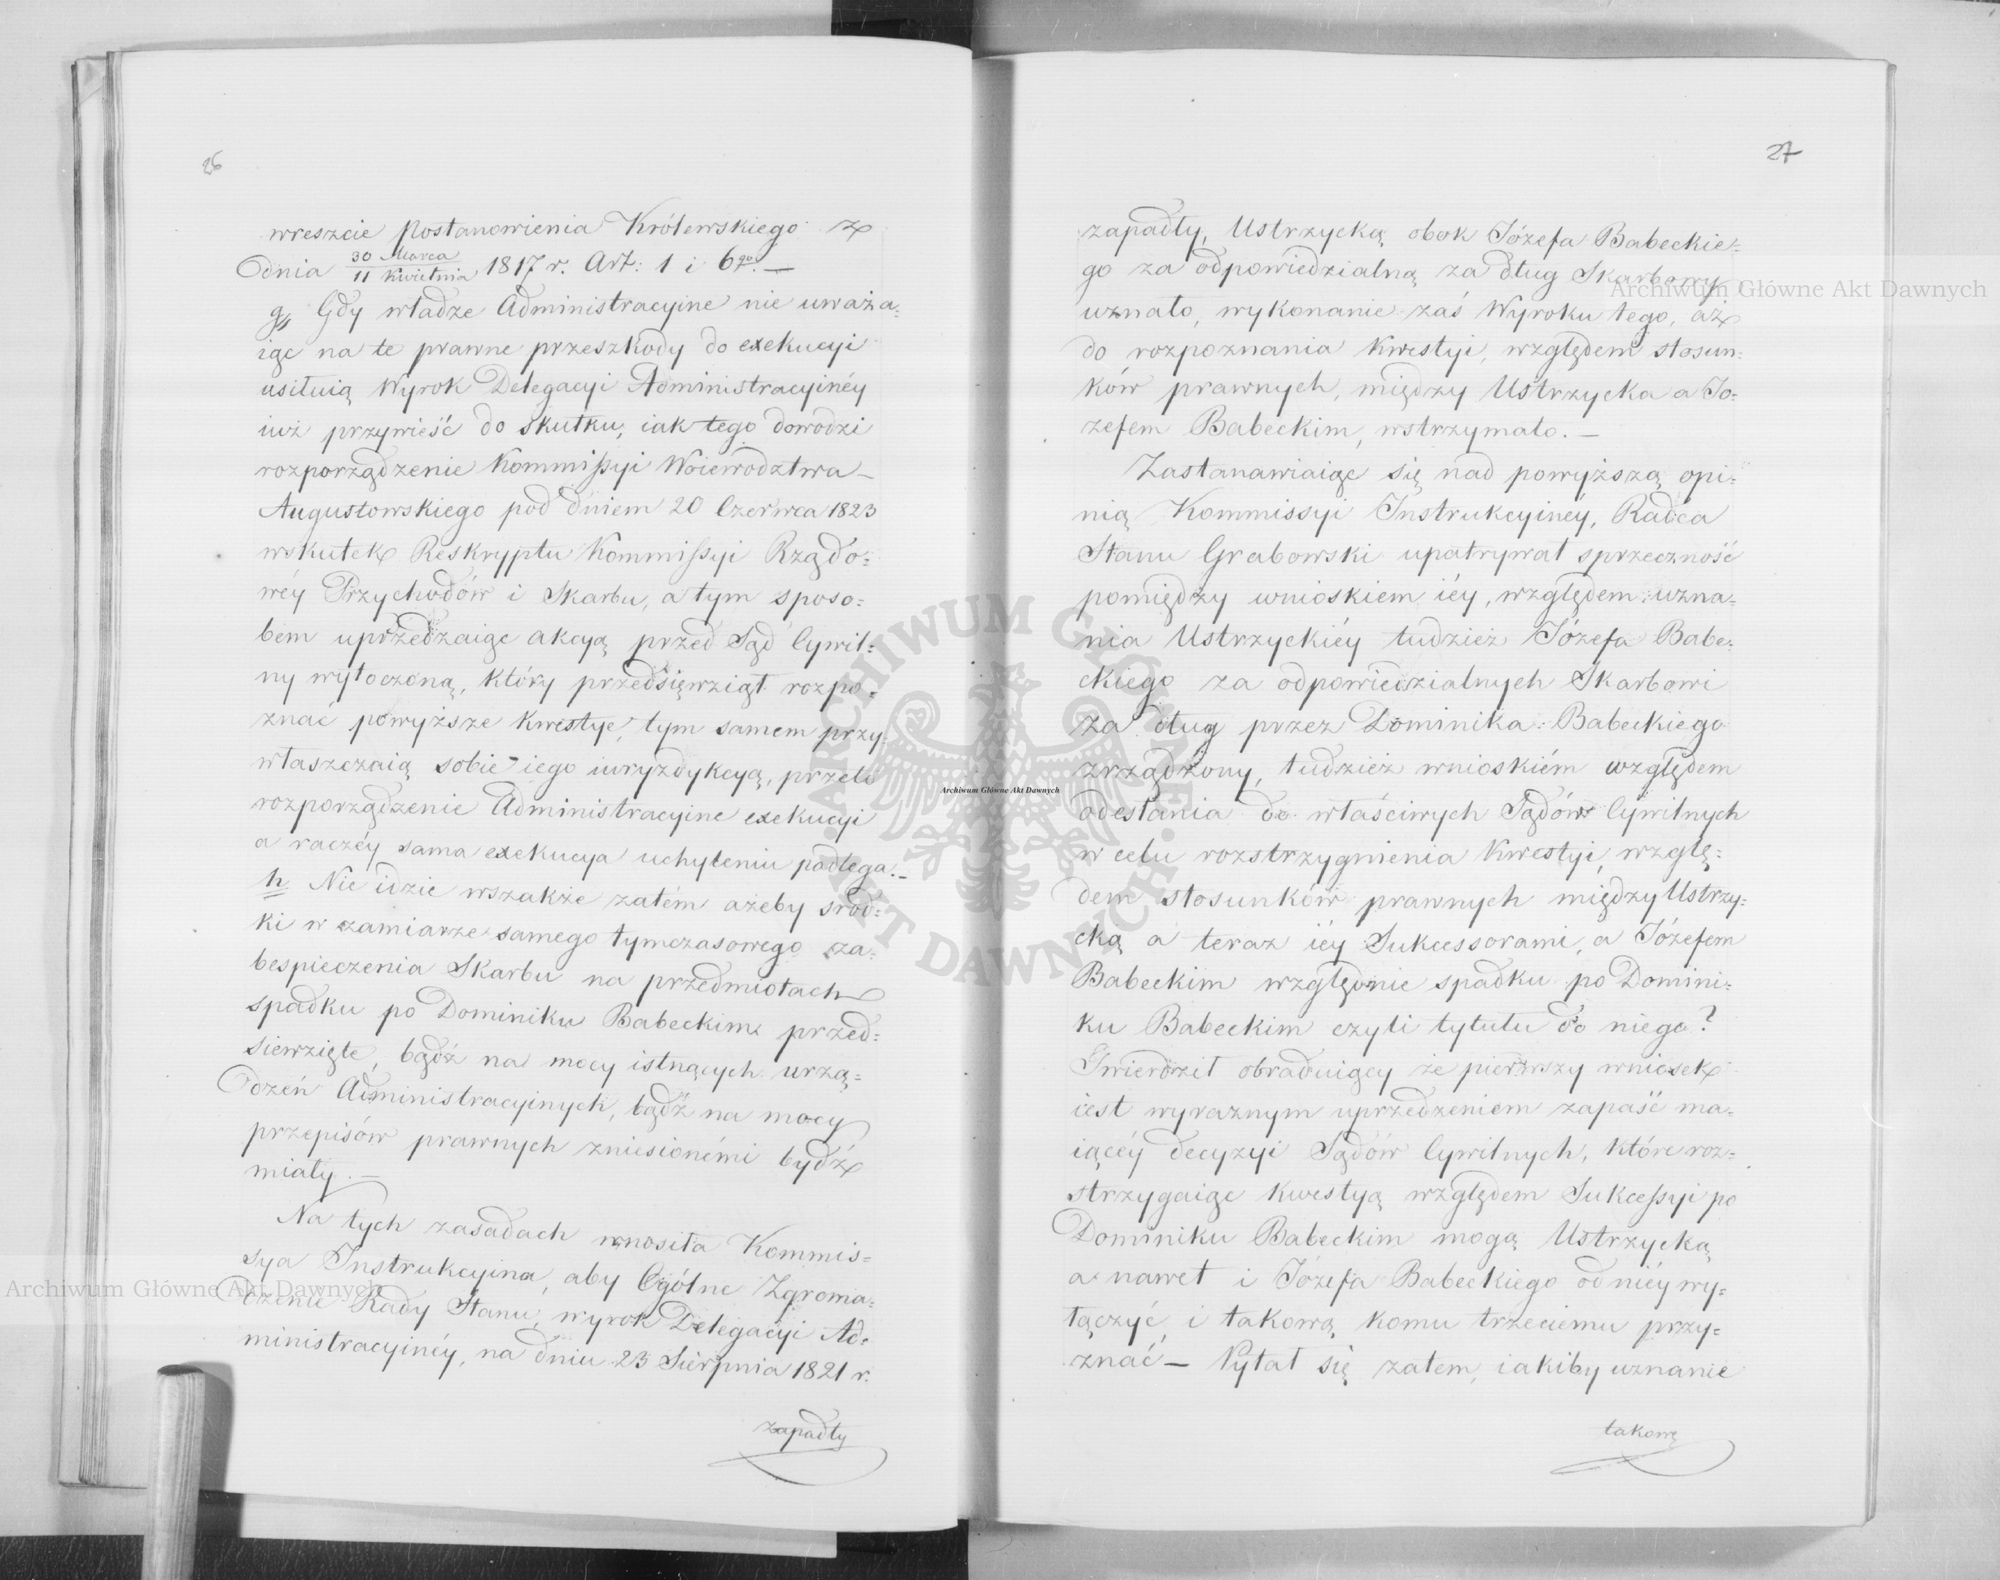 26
wreszcie postanowienia Królewskiego z
dnia 30 Marca / 11 Kwietnia 1817 r. Art: 1 i 6go. —
g, Gdy władze Administracyine nie uważa-
iąc na te prawne przeszkody do exekucyi
usiłuią Wyrok Delegacyi Administracyinéy
iuż przywieść do skutku, iak tego dowodzi
rozporządzenie Kommissyi Woiewodztwa —
Augustowskiego pod dniem 20 Czerwca 1823
wskutek Reskryptu Kommissyi Rządo-
wéy Przychodów i Skarbu, a tym sposo-
bem uprzedzaiąc akcyą przed Sąd Cywil-
ny wytoczoną, który przedsięwziął rozpo-
znać powyższe kwestye, tym samem przy-
właszczaią sobie iego iuryzdykcyą, przeto
rozporządzenie Administracyine exekucyi
a raczéy sama exekucya uchyleniu podlega. —
h Nie idzie wszakże zatém ażeby srod-
ki w zamiarze samego tymczasowego za-
bespieczenia Skarbu na przedmiotach
spadku po Dominiku Babeckim przed-
siewzięte, bądź na mocy istnących urzą-
dzeń Administracyinych, bądź na mocy
przepisów prawnych zniesionémi bydź
miały. —
Na tych zasadach wnosiła Kommis-
sya Instrukcyina, aby Ogólne Zgroma-
dzenie Rady Stanu, wyrok Delegacyi Ad-
ministracyinéy, na dniu 23 Sierpnia 1821 r.
zapadły
27
zapadły, Ustrzycką obok Józefa Babeckie-
go za odpowiedzialną za dług Skarbowy
uznało, wykonanie zaś Wyroku tego, aż
do rozpoznania kwestyi, względem stosun-
ków prawnych, między Ustrzycka a Jo-
zefem Babeckim, wstrzymało. —
Zastanawiaiąc się nad powyższą opi-
nią Kommissyi Instrukcyinéy, Radca
Stanu Grabowski upatrywał sprzeczność
pomiędzy wnioskiem iéy, względem uzna-
nia Ustrzyckiéy tudzież Józefa Babe-
ckiego za odpowiedzialnych Skarbowi
za dług przez Dominika Babeckiego
zrządzony, tudzież wnioskiém względem
odesłania do właściwych Sądów Cywilnych
w celu rozstrzygnienia kwestyi, wzglę-
dem stosunków prawnych między Ustrzy-
cką a teraz iéy Sukcessorami, a Józefem
Babeckim względnie spadku po Domini-
ku Babeckim czyli tytułu do niego?
Twierdził obraduiący że pierwszy wniosek
iest wyraznym uprzedzeniem zapaść ma-
iącéy decyzyi Sądów Cywilnych, które roz-
strzygaiąc kwestyą względem Sukcessyi po
Dominiku Babeckim mogą Ustrzycką
a nawet i Józefa Babeckiego od niéy wy-
łączyć i takową komu trzeciemu przy-
znać — Pytał się zatem, iakiby uznanie
takowę
Archiwum Główne Akt Dawnych
Archiwum Główne Akt Dawnych
Archiwum Główne Akt Dawnych
ARCHIWUM GŁÓWNE AKT DAWNYCH